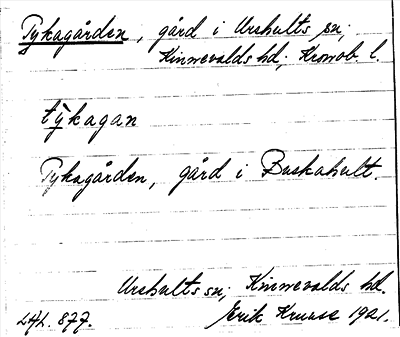 Pykagården, gård i Urshults sn,
Kinnevalds hd; Kronob. l.
týkagan
Pykagården, gård i Buskahult.
Urshults sn; Kinnevalds hd.
LAL. 877. Erik Kruuse 1921.